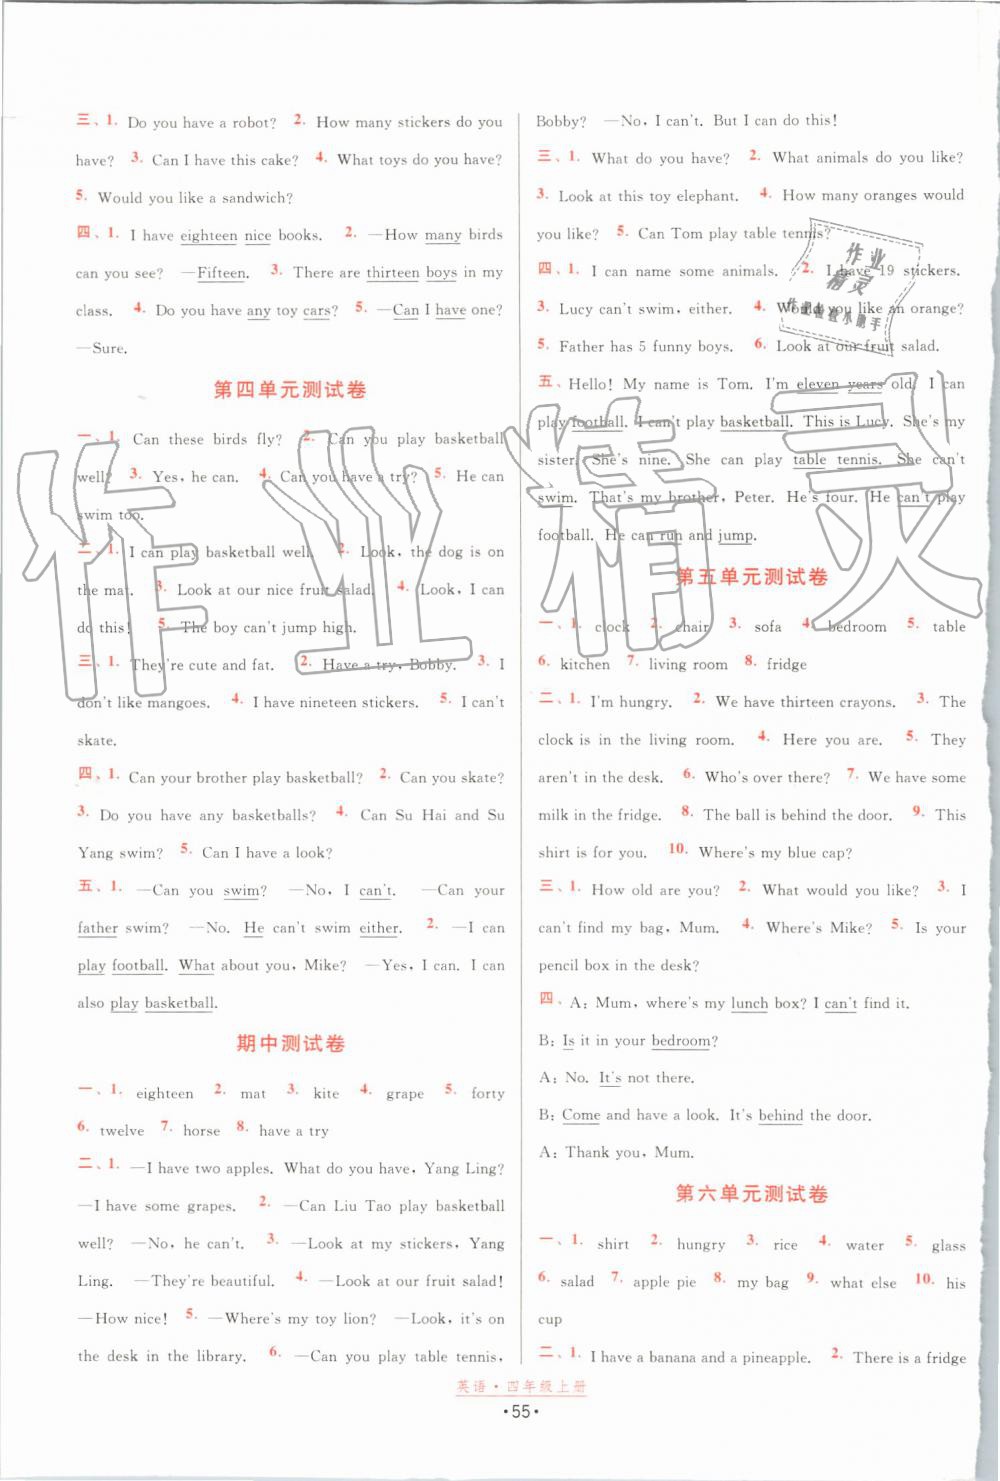 三、1. Do you have a robot? 2. How many stickers do you
have? 3. Can I have this cake? 4. What toys do you have?
5. Would you like a sandwich?
四、1. I have eighteen nice books. 2. —How many birds
can you see? —Fifteen. 3. There are thirteen boys in my
class. 4. Do you have any toy cars? 5. —Can I have one?
—Sure.
第四单元测试卷
一、1. Can these birds fly? 2. Can you play basketball
well? 3. Yes, he can. 4. Can you have a try? 5. He can
swim too.
二、1. I can play basketball well. 2. Look, the dog is on
the mat. 3. Look at our nice fruit salad. 4. Look, I can
do this! 5. The boy can't jump high.
三、1. They're cute and fat. 2. Have a try, Bobby. 3. I
don't like mangoes. 4. I have nineteen stickers. 5. I can't
skate.
四、1. Can your brother play basketball? 2. Can you skate?
3. Do you have any basketballs? 4. Can Su Hai and Su
Yang swim? 5. Can I have a look?
五、1. —Can you swim? —No, I can't. —Can your
father swim? —No. He can't swim either. 2. —I can
play football. What about you, Mike? —Yes, I can. I can
also play basketball.
期中测试卷
一、1. eighteen 2. mat 3. kite 4. grape 5. forty
6. twelve 7. horse 8. have a try
二、1. —I have two apples. What do you have, Yang Ling?
—I have some grapes. 2. —Can Liu Tao play basketball
well? —No, he can't. 3. —Look at my stickers, Yang
Ling. —They're beautiful. 4. —Look at our fruit salad!
—How nice! 5. —Where's my toy lion? —Look, it's on
the desk in the library. 6. —Can you play table tennis,
Bobby? —No, I can't. But I can do this!
三、1. What do you have? 2. What animals do you like?
3. Look at this toy elephant. 4. How many oranges would
you like? 5. Can Tom play table tennis?
四、1. I can name some animals. 2. I have 19 stickers.
3. Lucy can't swim, either. 4. Would you like an orange?
5. Father has 5 funny boys. 6. Look at our fruit salad.
五、Hello! My name is Tom. I'm eleven years old. I can
play football. I can't play basketball. This is Lucy. She's my
sister. She's nine. She can play table tennis. She can't
swim. That's my brother, Peter. He's four. He can't play
football. He can run and jump.
第五单元测试卷
一、1. clock 2. chair 3. sofa 4. bedroom 5. table
6. kitchen 7. living room 8. fridge
二、1. I'm hungry. 2. We have thirteen crayons. 3. The
clock is in the living room. 4. Here you are. 5. They
aren't in the desk. 6. Who's over there? 7. We have some
milk in the fridge. 8. The ball is behind the door. 9. This
shirt is for you. 10. Where's my blue cap?
三、1. How old are you? 2. What would you like? 3. I
can't find my bag, Mum. 4. Where's Mike? 5. Is your
pencil box in the desk?
四、A: Mum, where's my lunch box? I can't find it.
B: Is it in your bedroom?
A: No. It's not there.
B: Come and have a look. It's behind the door.
A: Thank you, Mum.
第六单元测试卷
一、1. shirt 2. hungry 3. rice 4. water 5. glass
6. salad 7. apple pie 8. my bag 9. what else 10. his
cup
二、1. I have a banana and a pineapple. 2. There is a fridge
英语·四年级上册
·55·
作业精灵
作业精灵
作业检查小助手